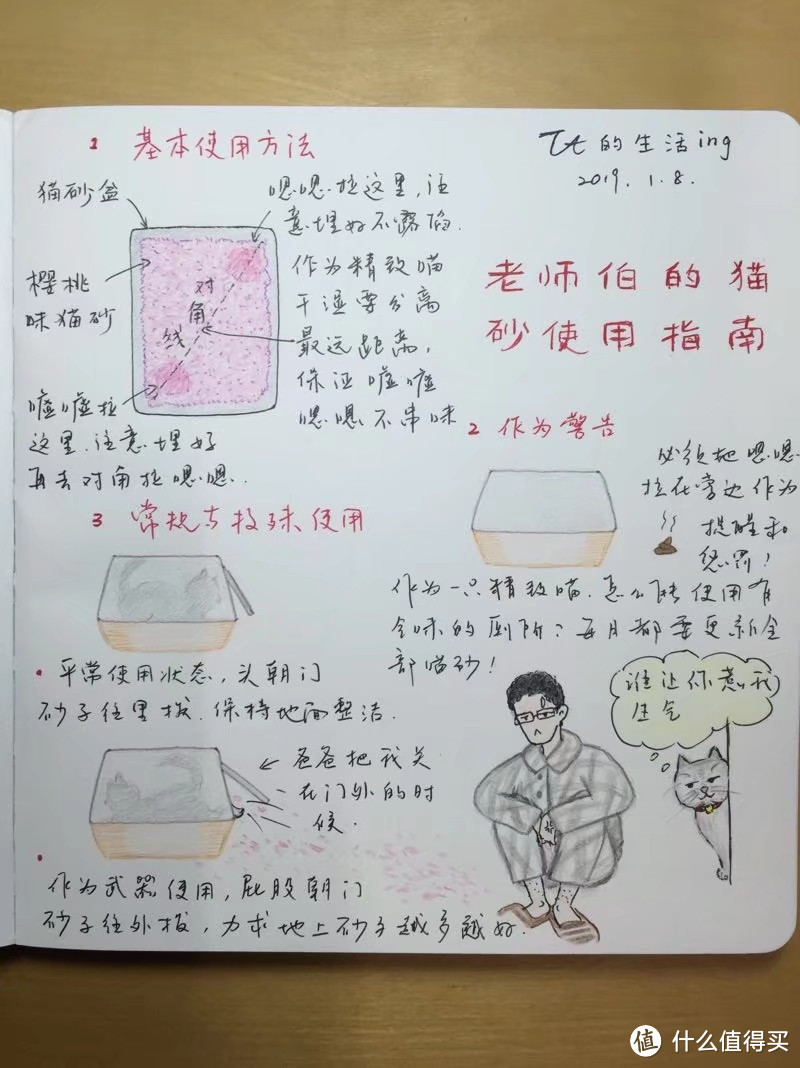 1 基本使用方法
猫砂盆
樱桃
味猫砂
对
角
线
嗯嗯拉这里,注
意埋好不露馅.
作为精致喵
干湿要分离
最远距离,
保证嘘嘘
嗯嗯不串味
嘘嘘拉
这里.注意埋好
再去对角拉嗯嗯.
的生活ing
2019.1.8.
老师伯的猫
砂使用指南
2 作为警告
必须把嗯嗯
拉在旁边作为
提醒和
惩罚!
作为一只精致喵.怎么能使用有
余味的厕所?每月都要更新全
部喵砂!
3 常规与特殊使用
平常使用状态,头朝门
砂子往里拨.保持地面整洁.
爸爸把我关
在门外的时
候.
作为武器使用,屁股朝门
砂子往外拨,力求地上砂子越多越好.
谁让你惹我
生气
值 什么值得买